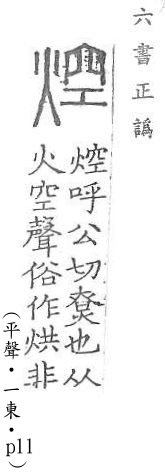 六書正譌
焢
焢呼公切尞也从
火空聲俗作烘非
（平聲・一東・p11）